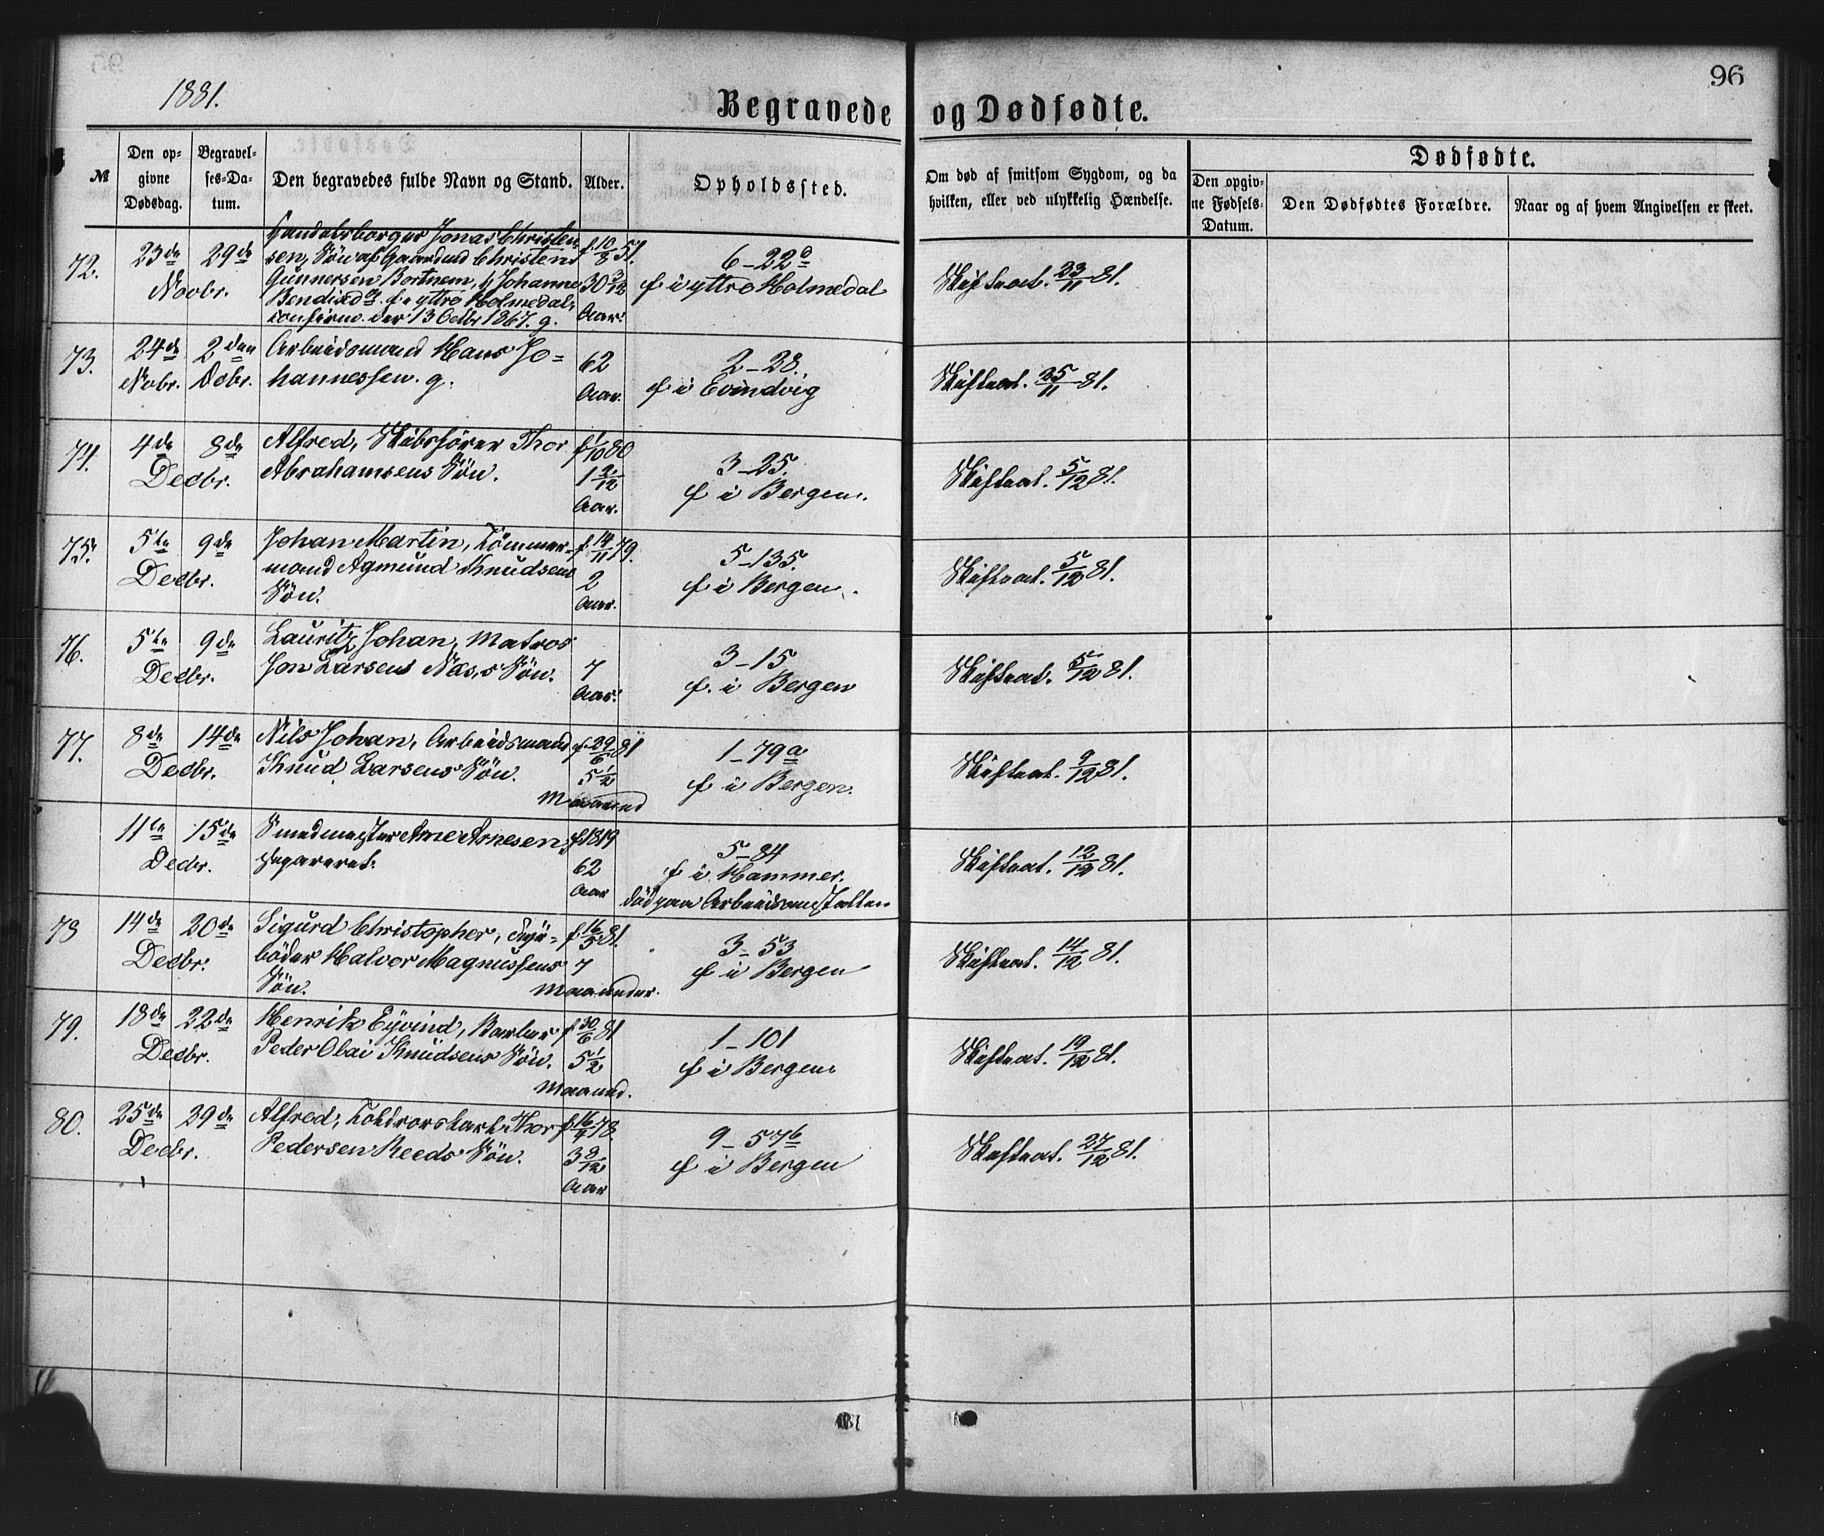 1881.
96
Begravede og Dødfødte.
№
Den opgivne Dødsdag.
Begravelses-Datum.
Den begravedes fulde Navn og Stand.
Alder.
Opholdssted.
Om død af smitsom Sygdom, og da hvilken, eller ved ulykkelig Hændelse.
Dødfødte.
Den opgivne Fødsels-Datum.
Den Dødfødtes Forældre.
Naar og af hvem Angivelsen er skeet.
72. 23de 29de Handelsborger Jonas Christen- f 10/8 51. 6-22d
Novbr. sen, Søn af Gaardmd Christen 30 3/12 f i yttre Holmedal Skifteat. 23/11 81.
Gunnersen Bortnem, & Johanne Aar.
Bendixd. f. i yttre Holmedal,
confirm. der 13 Octbr 1867. g.
73. 24de 2den Arbeidsmand Hans Jo- 62 2-28.
Nobr. Debr. hannessen. g. Aar. f i Evindvig Skifteat. 25/11 81.
74. 4de 8de Alfred, Skibsfører Thor f 1/10 80 3-25.
Decbr. Abrahamsens Søn. 1 2/12 Aar. f i Bergen. Skifteat. 5/12 81.
75. 5te 9de Johan Martin, Tømmer- f 14/11 79. 5-135.
Decbr. mand Agmund Knudsens 2 f i Bergen. Skifteat. 5/12 81.
Søn. Aar.
76. 5te 9de Lauritz Johan, Matros 3-15
Decbr. Jon Larsens Næss Søn. 7 Aar. f. i Bergen Skifteat. 5/12 81.
77. 8de 14de Nils Johan, Arbeidsmand f 29/6 81 1-79a
Decbr. Knud Larsens Søn. 5 1/2 Maaned f i Bergen. Skifteat. 9/12 81.
11te 15de Smedmester Arne Arnesen, f 1819 5-84
Decbr. separeret. 62 Aar f i Hammer. Skifteat. 12/12 81.
død paa Arbeidsanstalten
78 14de 20de Sigurd Christopher, f 16/5 81. 3-53
Decbr. Halvor Magnussens 7 f i Bergen Skifteat. 14/12 81.
Søn. Maaneder.
79. 18de 22de Henrik Eyvind, f 30/6 81 1-101
Decbr. Peder Olai Knudsens Søn. 5 1/2 f i Bergen Skifteat. 19/12 81.
Maaned.
80. 25de 29de Alfred, Thor f 16/4 78. 9-57b
Decbr. Pedersen Reeds Søn. 3 8/12 Aar f i Bergen Skifteat. 27/12 81.